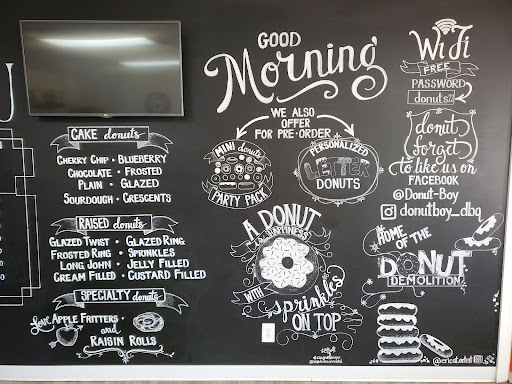 U
CAKE donuts
CHERRY CHIP • BLUEBERRY
CHOCOLATE • FROSTED
PLAIN • GLAZED
SOURDOUGH • CRESCENTS
RAISED donuts
GLAZED TWIST • GLAZED RING
FROSTED RING • SPRINKLES
LONG JOHN • JELLY FILLED
CREAM FILLED • CUSTARD FILLED
SPECIALTY donuts
love APPLE FRITTERS
and
RAISIN ROLLS
GOOD
Morning
WE ALSO
OFFER
FOR PRE-ORDER
MINI donuts
PARTY PACK
PERSONALIZED
LETTER
DONUTS
A DONUT
IS HAPPINESS
WITH
sprinkles
ON TOP
WiFi
FREE
PASSWORD
donuts22
donut
forget
to like us on
FACEBOOK
@Donut-Boy
donutboy_dbq
#HOME
OF THE
DONUT
DEMOLITION